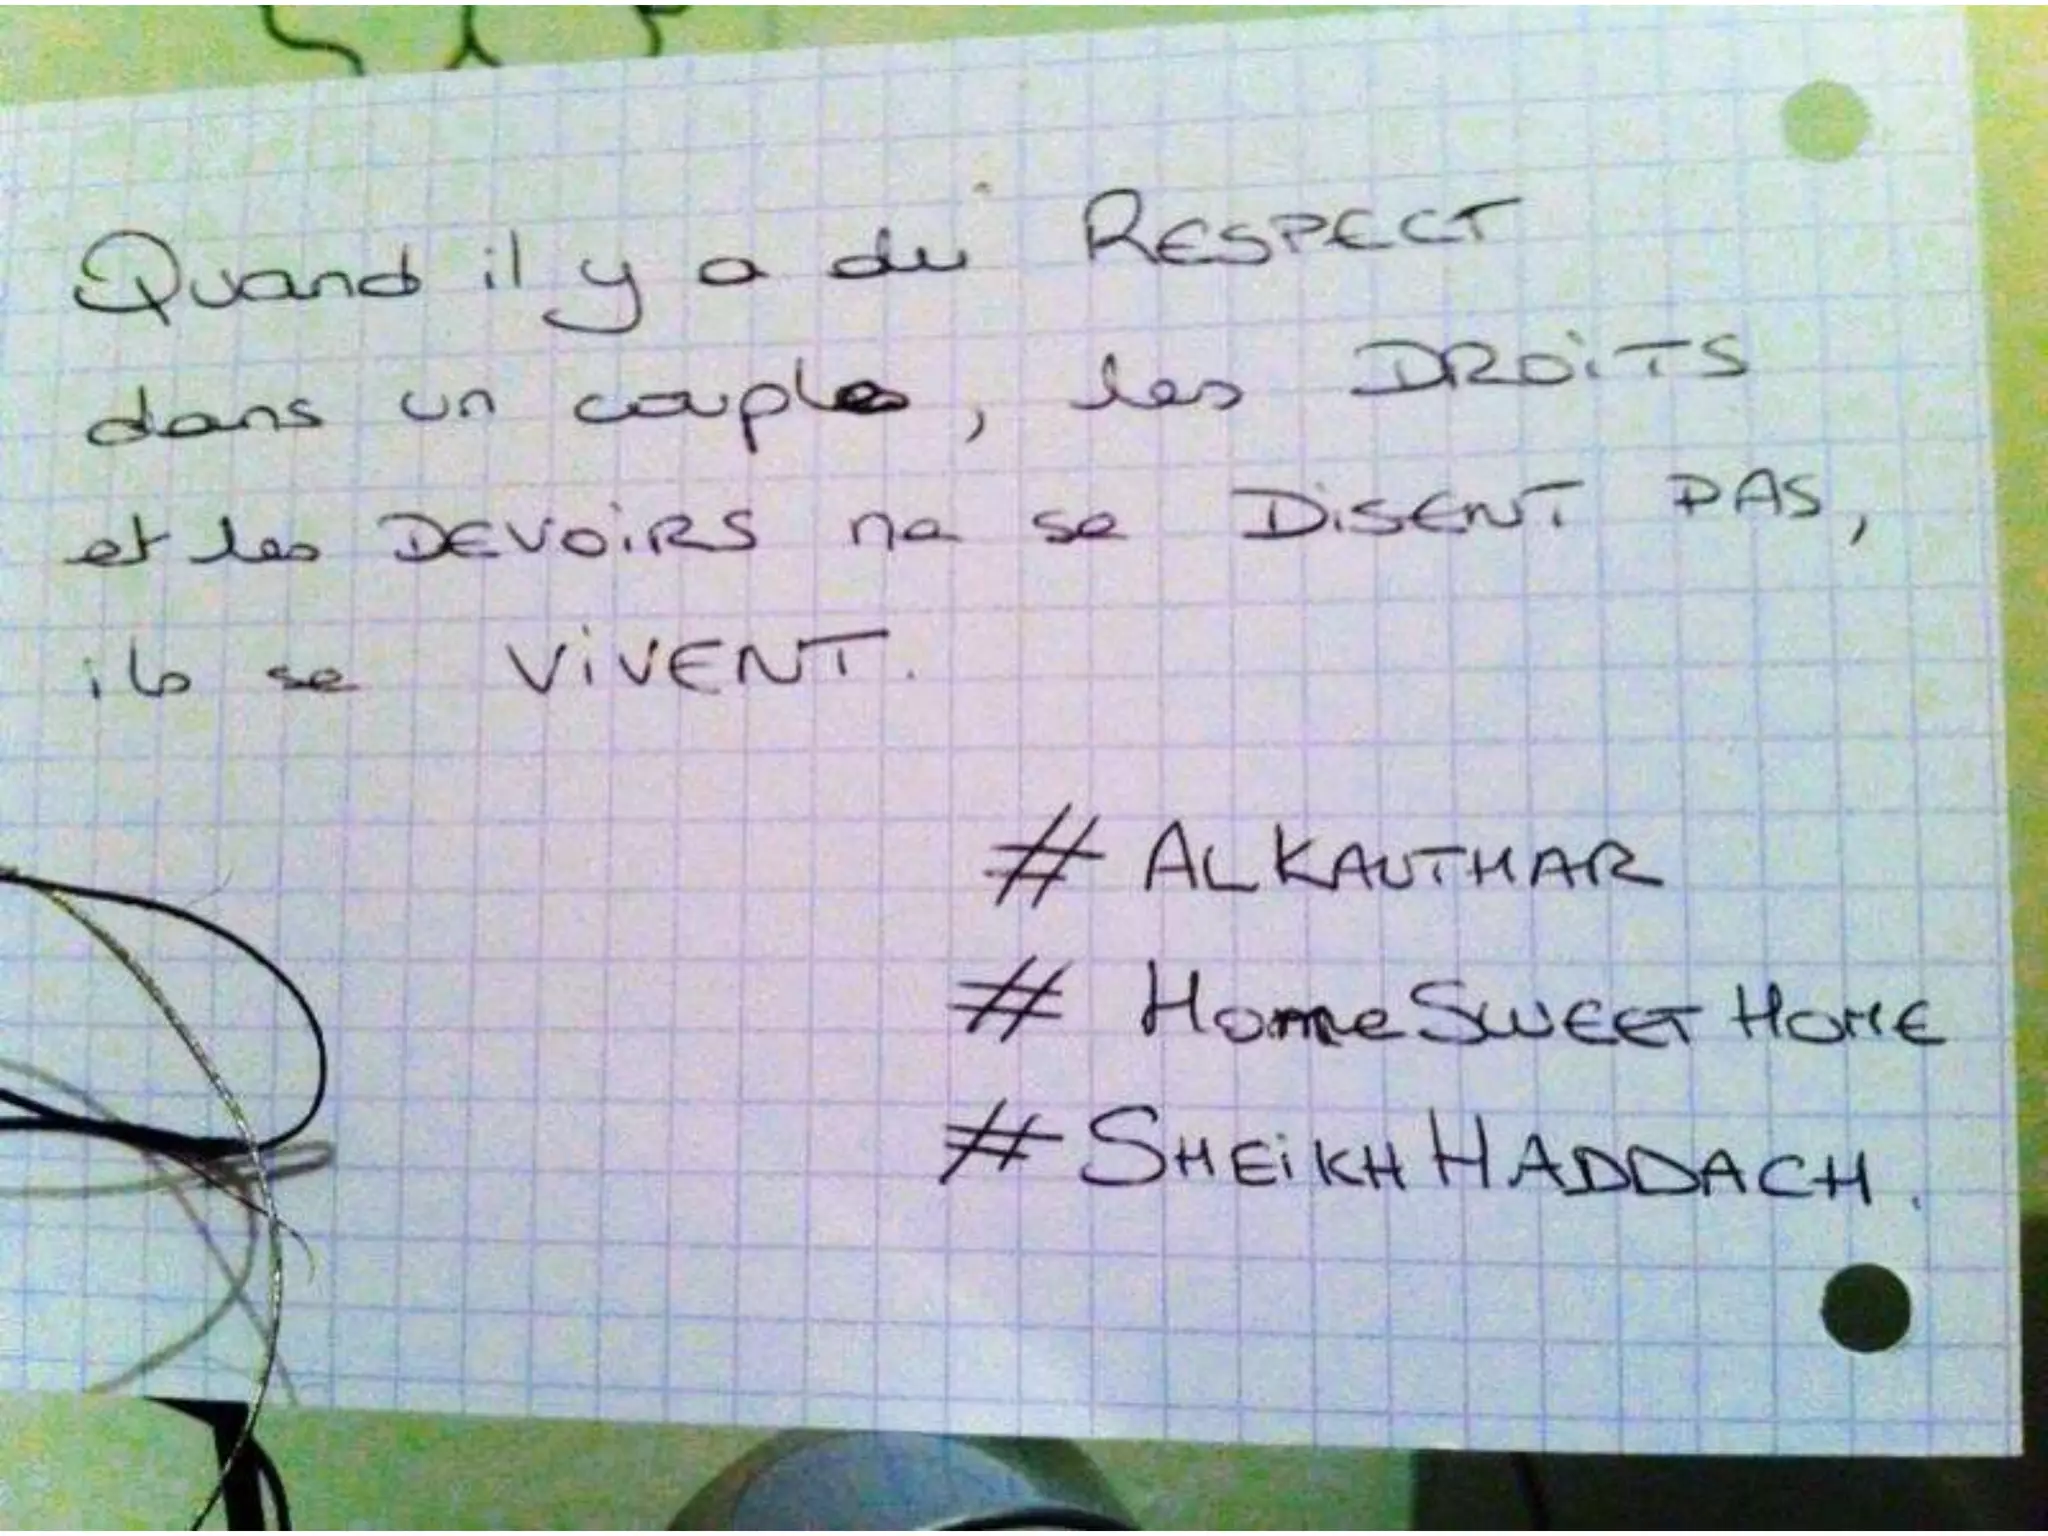 Quand il y a du RESPECT
dans un couple, les DROiTS
et les DEVOiRS ne se DiSENT PAS,
ils se ViVENT.
# ALKAUTHAR
# HomeSWEET HOME
# SHEiKH HADDACH.